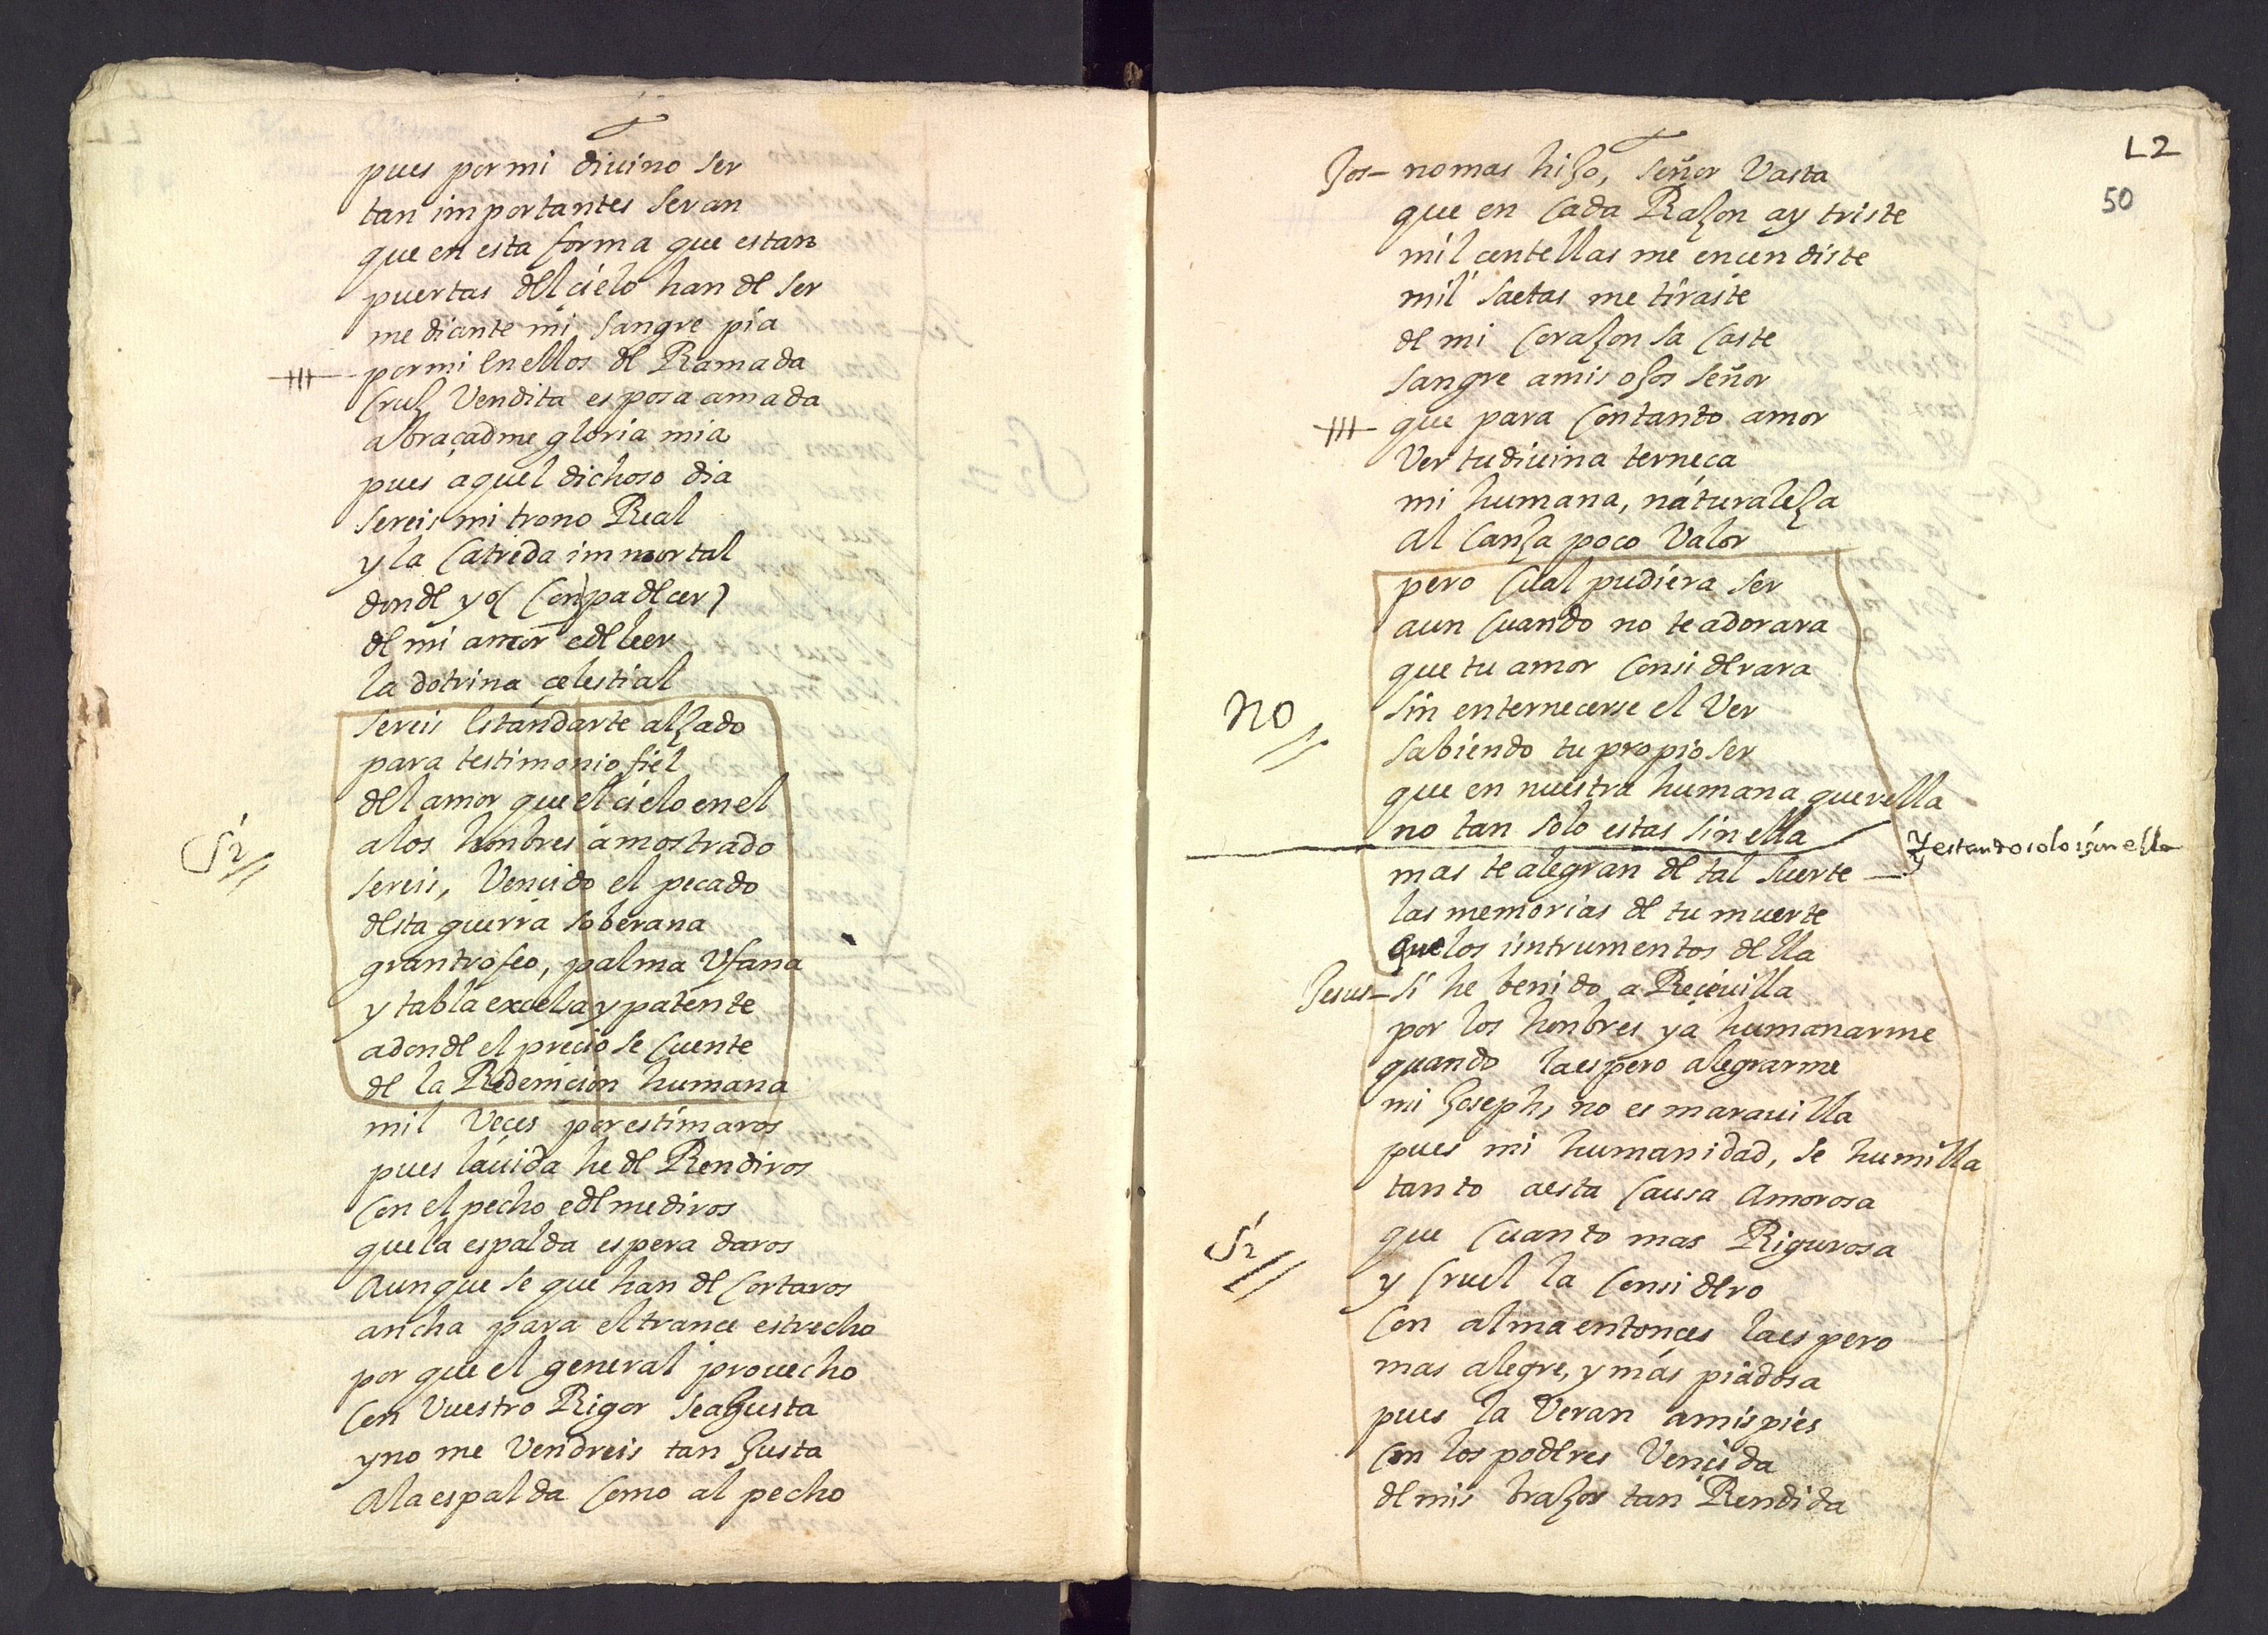 pues por mi diuino ser
tan importantes seran
que en esta forma que estan
puertas del cielo han de ser
mediante mi sangre pia
por mi en ellos deRamada
cruz Vendita esposa amada
abraçadme gloria mia
pues aquel dichoso dia
sereis mi trono Real
y la catreda immortal
donde yo (con padecer)
de mi amor e de leer
la dotrina çelestial
Si
sereis estandarte alzado
para testimonio fiel
del amor que el cielo en el
a los honbres a mostrado
sereis, Vencido el pecado
desta guerra soberana
gran trofeo, palma Vfana
y tabla excelsa y patente
adonde el precio se cuente
de la Redencion humana
mil Veces por estimaros
pues la uida he de Rendiros
con el pecho e de mediros
que la espalda espera daros
Aunque se que han de cortaros
ancha para el trance estrecho
por que el general prouecho
con Vuestro Rigor se aJusta
y no me Vendreis tan Justa
a la espalda como al pecho
L2
50
Jos- no mas hijo, señor Vasta
que en cada Razon ay triste
mil centellas me encendiste
mil saetas me tiraste
de mi corazon sacaste
sangre a mis ojos señor
que para con tanto amor
Ver tu diuina terneca
mi humana, naturaleza
alcanza poco Valor
pero cual pudiera ser
aun cuando no te adorara
que tu amor considerara
no
sin enternecerse el Ver
sabiendo tu propio ser
que en nuestra humana querella
no tan solo estas sin ella
y estando solo sin ella
mas te alegran de tal suerte
las memorias de tu muerte
que los intrumentos della
Jesus- si he benido a Reciuilla
por los honbres y a humanarme
quando la espero alegrarme
mi Joseph, no es marauilla
pues mi humanidad, se humilla
tanto a esta causa Amorosa
que cuanto mas Rigurosa
Si
y cruel la considero
con alma entonces la espero
mas alegre, y más piadosa
pues la Veran a mis pies
con los poderes Vencida
de mis brazos tan Rendida